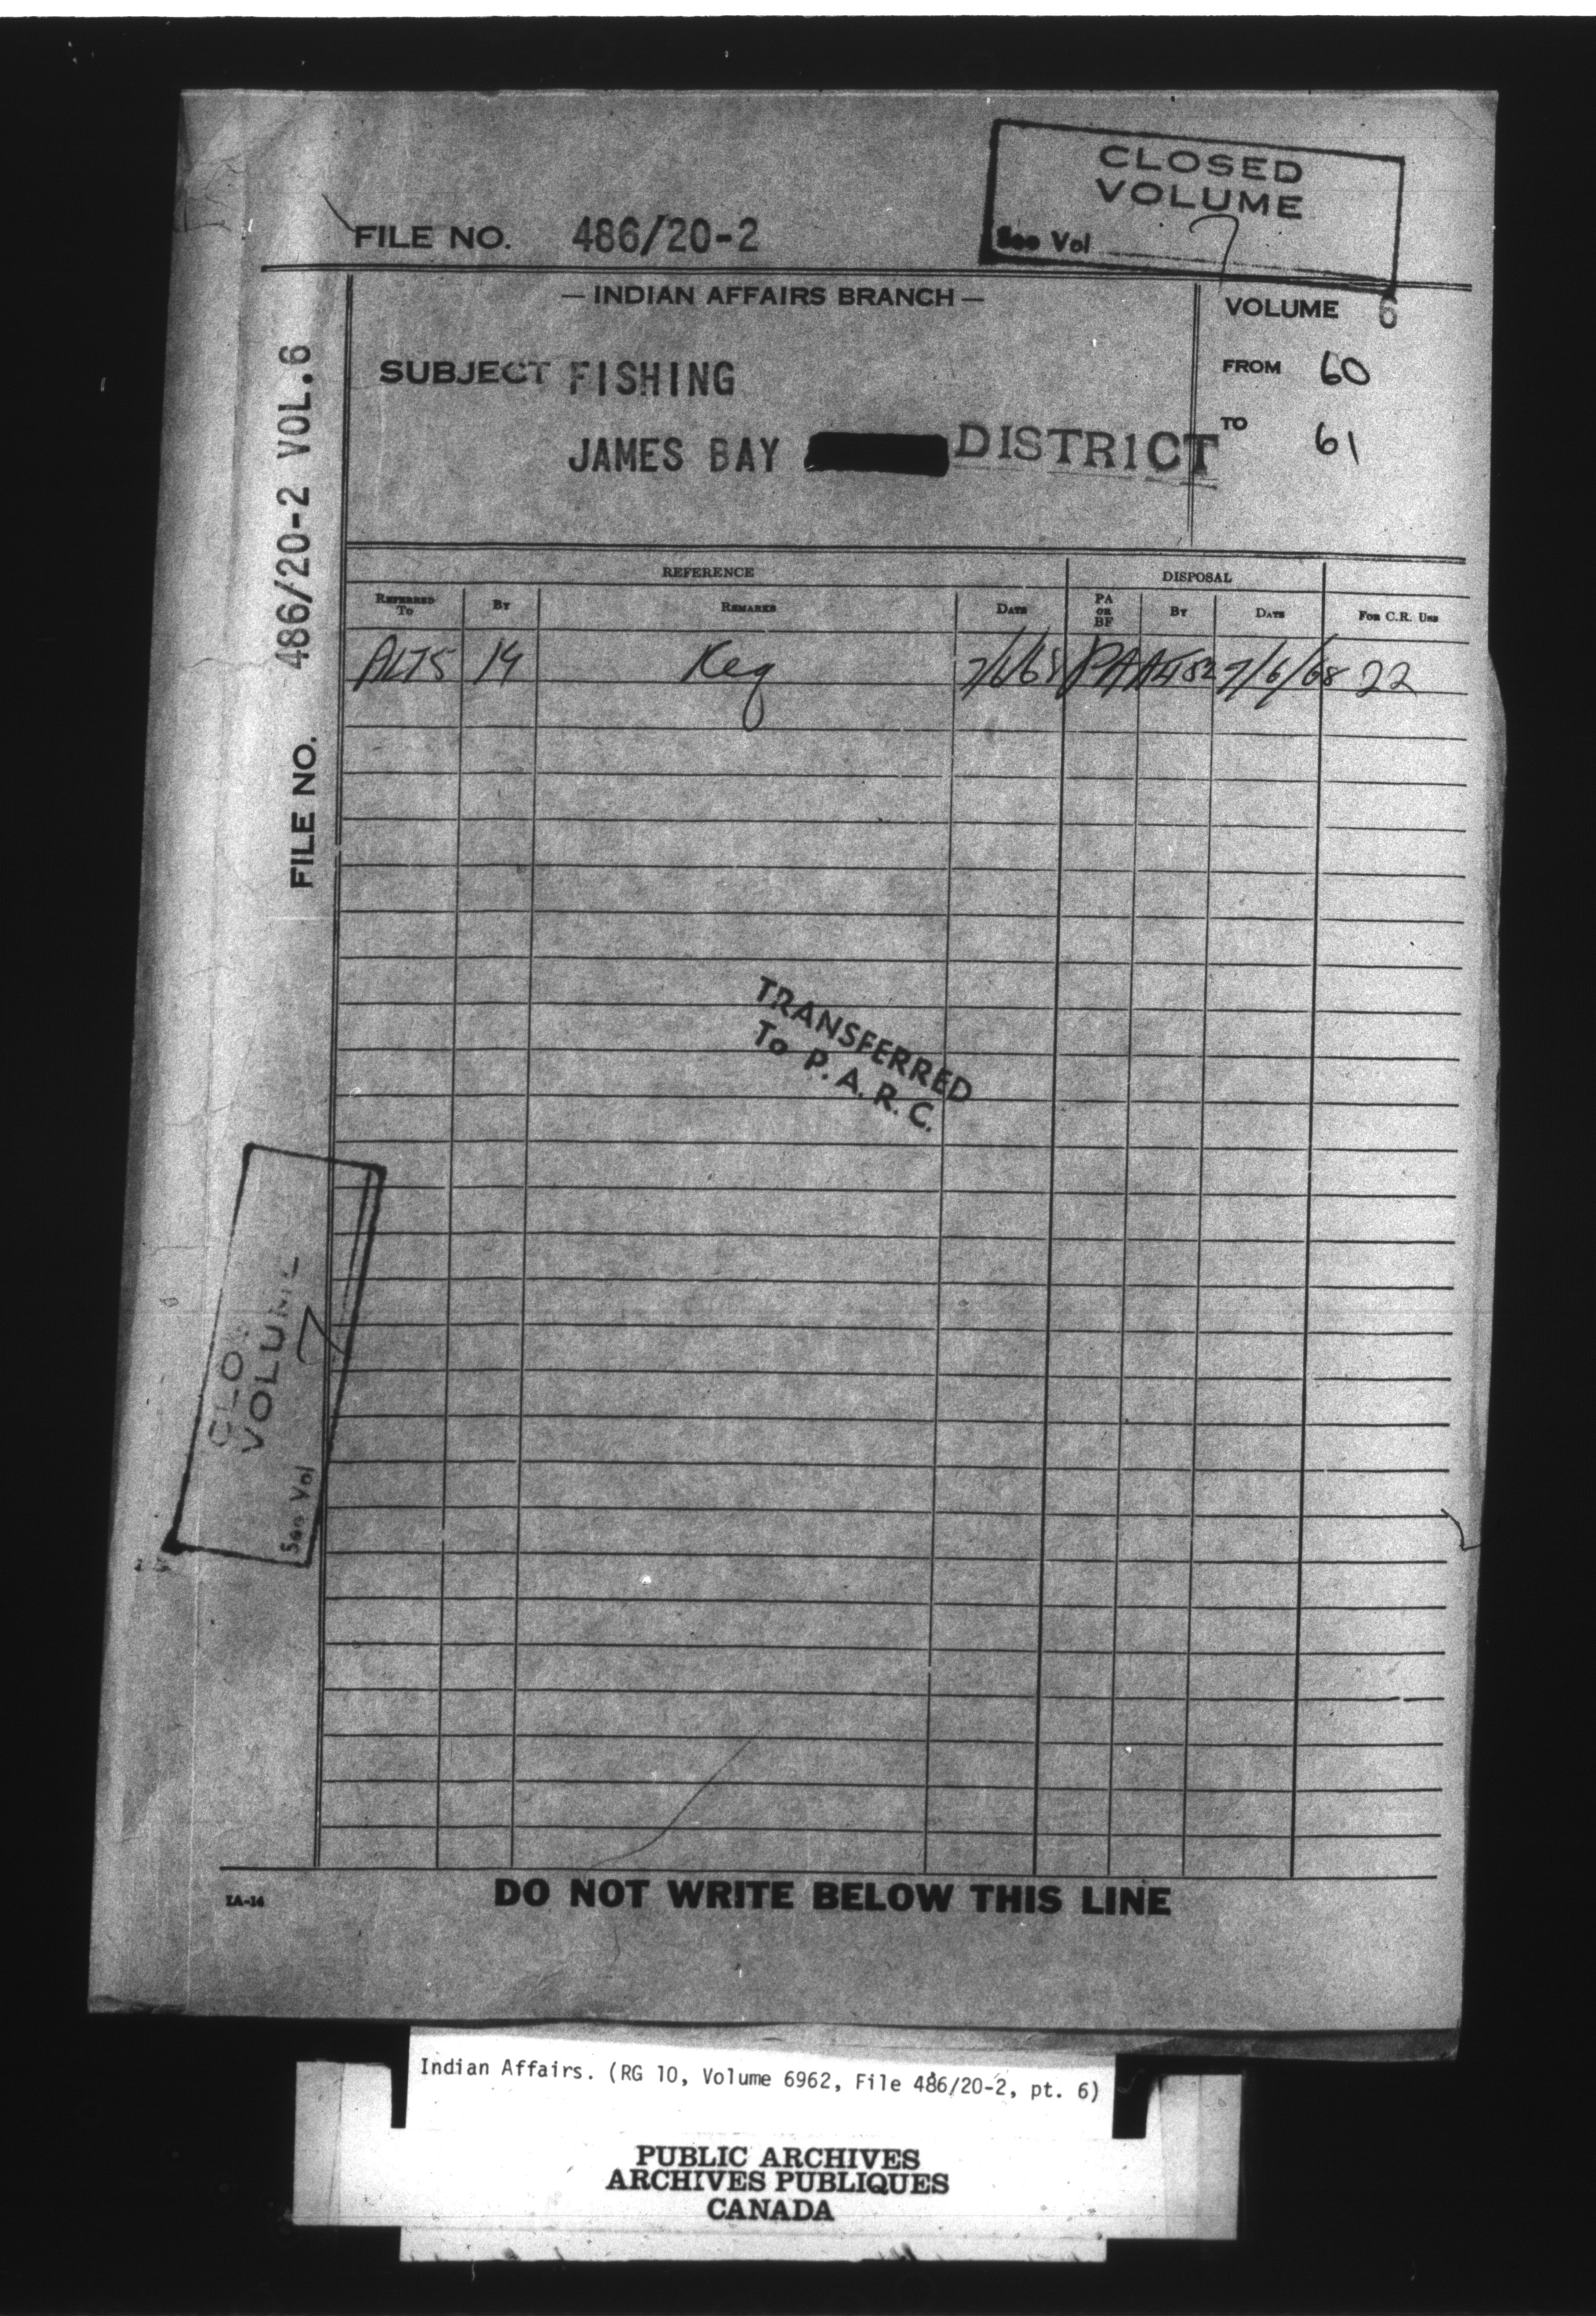 CLOSED
VOLUME
See Vol 7
FILE NO. 486/20-2
— INDIAN AFFAIRS BRANCH —
VOLUME 6
SUBJECT FISHING
FROM 60
JAMES BAY DISTRICT
TO 61
FILE NO. 486/20-2 VOL.6
REFERENCE DISPOSAL
REFERRED TO BY REMARKS DATE PA OR BF BY DATE FOR C.R. USE
14 Req 7/6/68 PA 7/6/68 22
TRANSFERRED
To P. A. R. C.
VOLUME
See Vol 7
IA-14
DO NOT WRITE BELOW THIS LINE
Indian Affairs. (RG 10, Volume 6962, File 486/20-2, pt. 6)
PUBLIC ARCHIVES
ARCHIVES PUBLIQUES
CANADA